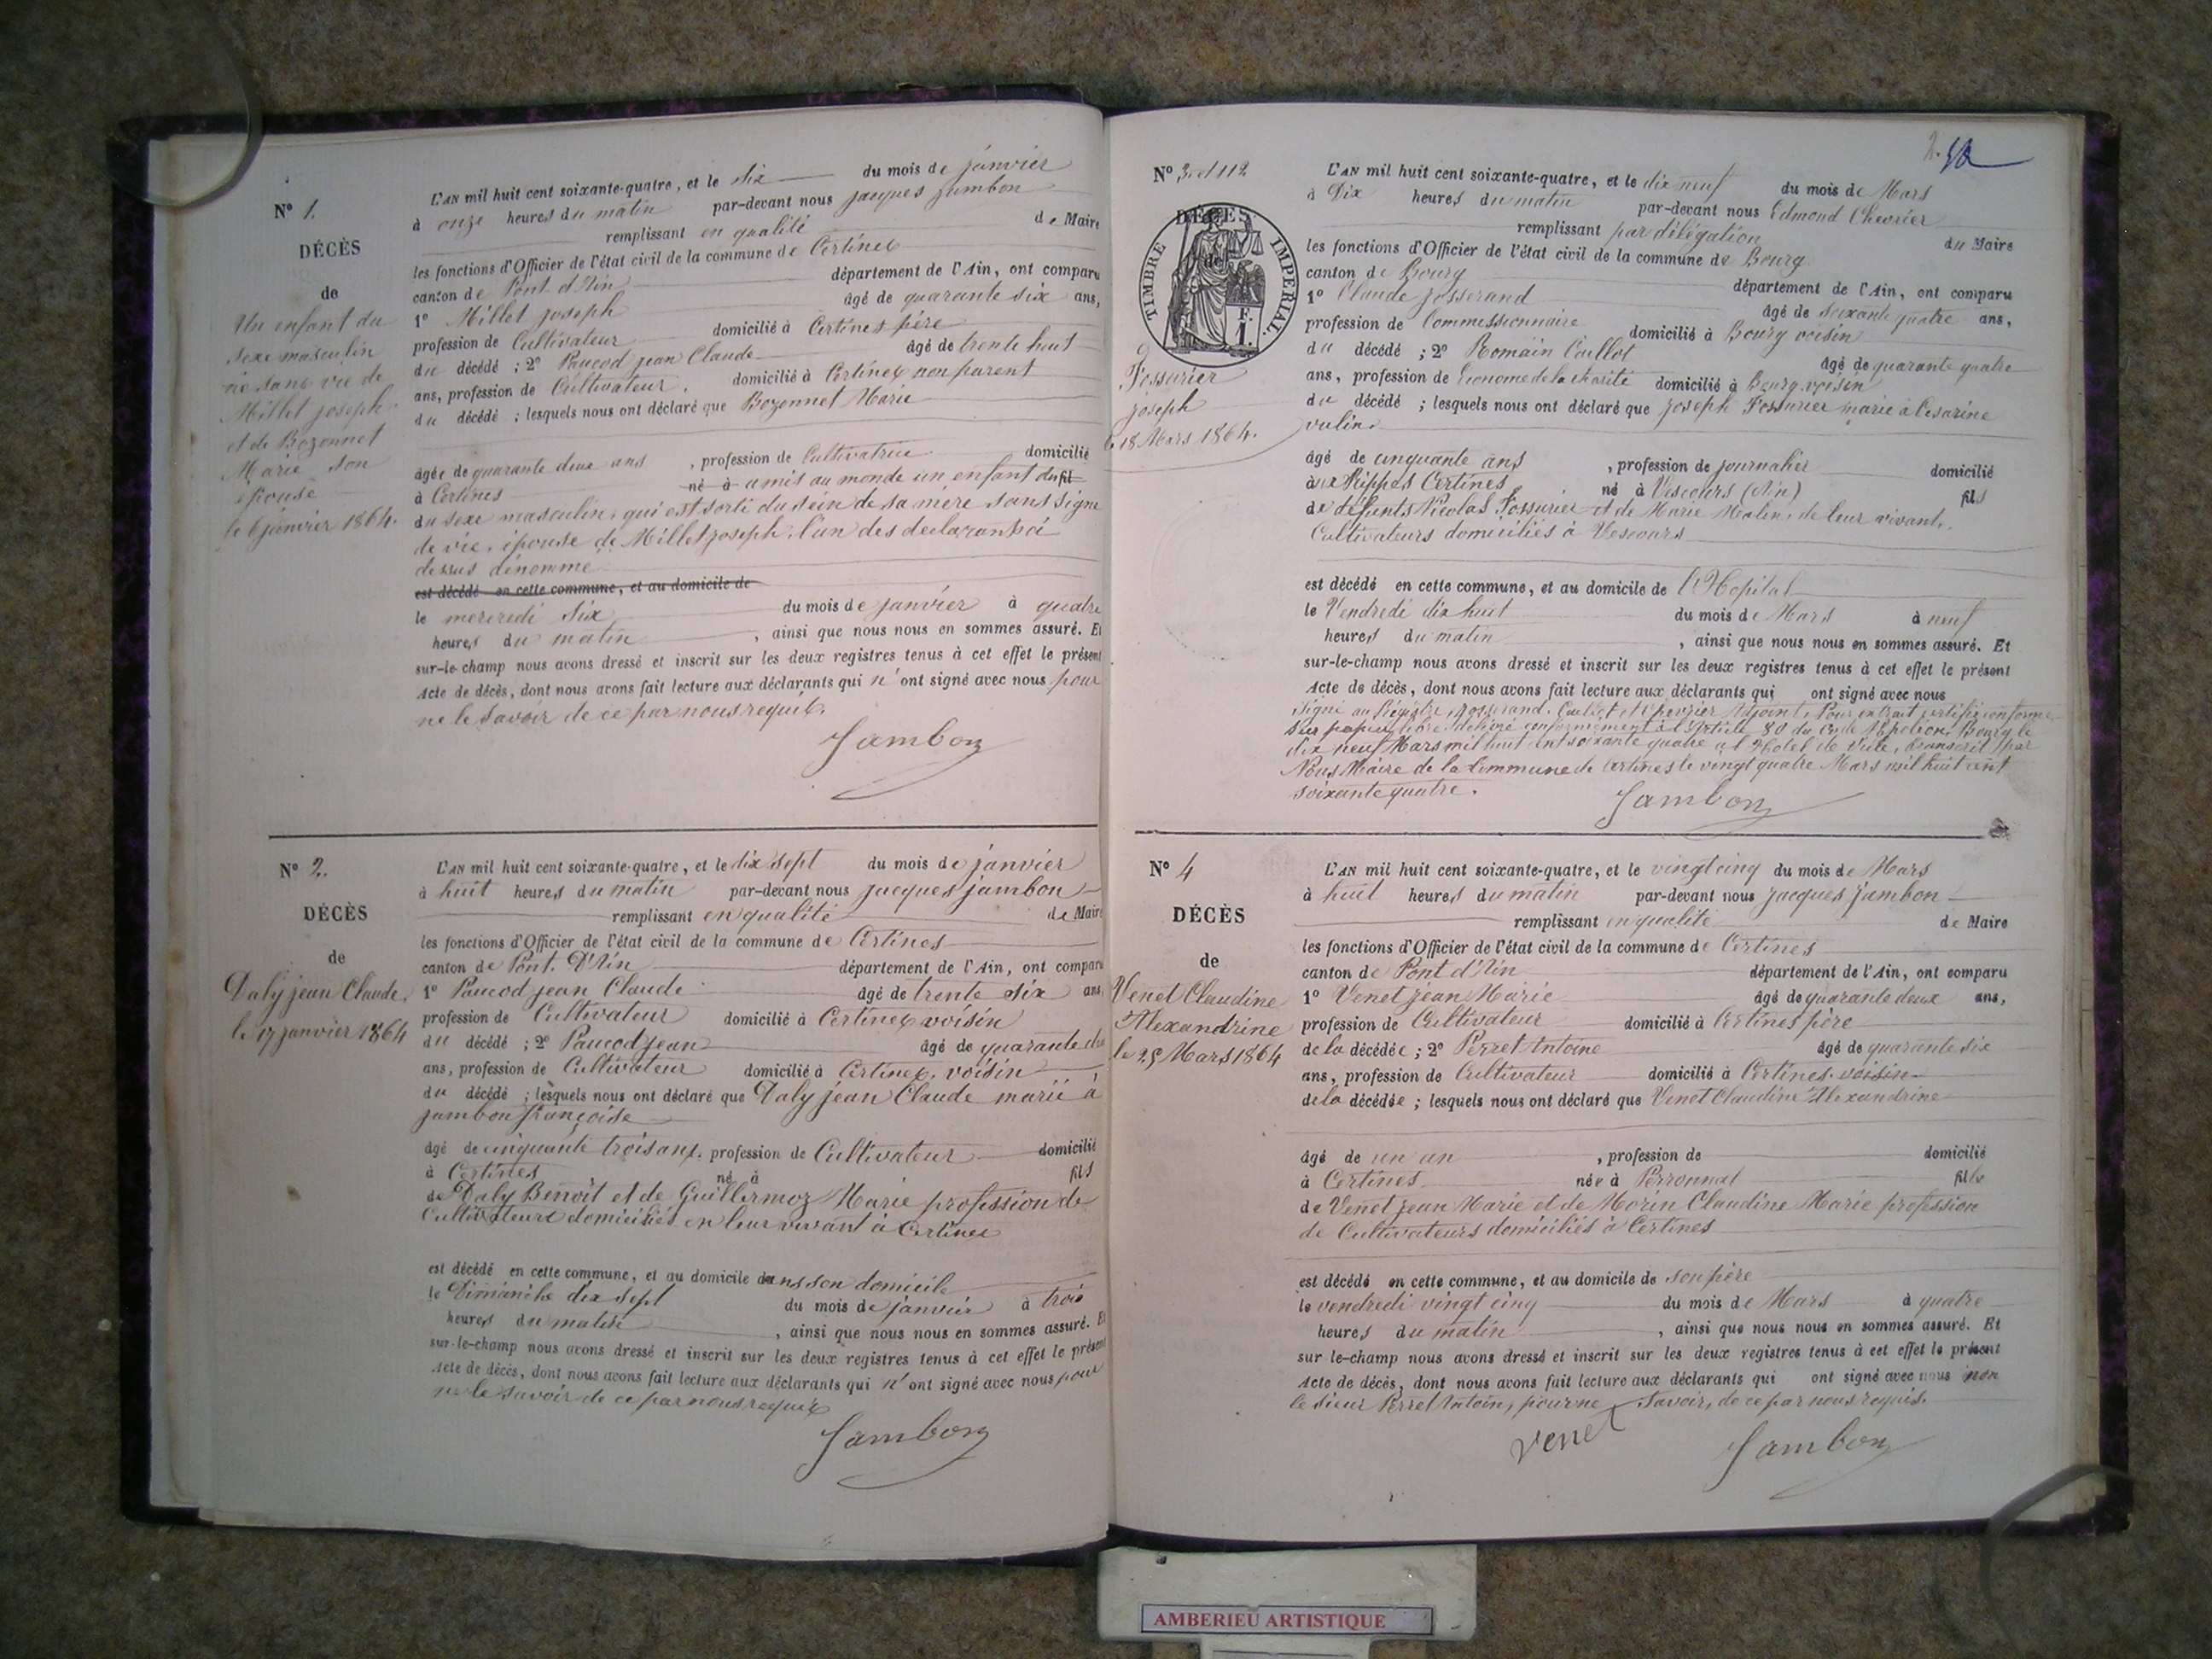 N° 1.
DÉCÈS
de
Un enfant du
sexe masculin
né sans vie de
Millet joseph
et de Bozonnet
Marie son
épouse
le 6 janvier 1864.
L'AN mil huit cent soixante-quatre, et le six du mois de janvier
à onze heures du matin par-devant nous jacques jambon
remplissant en qualité de Maire
les fonctions d'Officier de l'état civil de la commune de Certines
canton de Pont d'Ain département de l'Ain, ont comparu
1° Millet joseph âgé de quarante six ans,
profession de Cultivateur domicilié à Certines père
du décédé ; 2° Paucod jean Claude âgé de trente huit
ans, profession de Cultivateur. domicilié à Certines non parent
du décédé ; lesquels nous ont déclaré que Bozonnet Marie
âgée de quarante deux ans , profession de Cultivatrice domicilié
à Certines né à a mis au monde un enfant fil
du sexe masculin, qui est sorti du sein de sa mère sans signe
de vie, épouse de Millet joseph, l'un des déclarants ci
dessus dénommé
est décédé en cette commune, et au domicile de
le mercredi six du mois de janvier à quatre
heures du matin , ainsi que nous nous en sommes assuré. Et
sur-le-champ nous avons dressé et inscrit sur les deux registres tenus à cet effet le présent
Acte de décès, dont nous avons fait lecture aux déclarants qui n'ont signé avec nous pour
ne le savoir de ce par nous requis.
Jambon
N° 2.
DÉCÈS
de
Daly jean Claude.
le 17 janvier 1864
L'AN mil huit cent soixante-quatre, et le dix sept du mois de janvier
à huit heures du matin par-devant nous jacques jambon
remplissant en qualité de Maire
les fonctions d'Officier de l'état civil de la commune de Certines
canton de Pont. D'Ain département de l'Ain, ont comparu
1° Paucod jean Claude âgé de trente six ans
profession de Cultivateur domicilié à Certines voisin
du décédé ; 2° Paucod jean âgé de quarante
ans, profession de Cultivateur domicilié à Certines. voisin
du décédé ; lesquels nous ont déclaré que Daly jean Claude marié à
jambon françoise
âgé de cinquante trois ans. profession de Cultivateur domicilié
à Certines né à fils
de Daly Benoît et de Guillermoz Marie profession de
Cultivateurs domiciliés en leur vivant à Certines
est décédé en cette commune, et au domicile dans son domicile
le Dimanche dix sept du mois de janvier à trois
heures du matin , ainsi que nous nous en sommes assuré. Et
sur-le-champ nous avons dressé et inscrit sur les deux registres tenus à cet effet le présent
Acte de décès, dont nous avons fait lecture aux déclarants qui n'ont signé avec nous pour
ne le savoir de ce par nous requis
Jambon
N° 3. et 112
DÉCÈS
de
TIMBRE IMPERIAL.
F.
1.
Fossurier
joseph
le 18 Mars 1864.
L'AN mil huit cent soixante-quatre, et le dix neuf du mois de Mars
à Dix heures du matin par-devant nous Edmond Chevrier
remplissant par délégation du Maire
les fonctions d'Officier de l'état civil de la commune de Bourg
canton de Bourg département de l'Ain, ont comparu
1° Claude Josserand âgé de soixante quatre ans,
profession de Commissionnaire domicilié à Bourg voisin
du décédé ; 2° Romain Caillot âgé de quarante quatre
ans, profession de Econome de la charité domicilié à Bourg voisin
du décédé ; lesquels nous ont déclaré que joseph Fossurier marié à Cesarine
vulin
âgé de cinquante ans , profession de journalier domicilié
aux Rippes Certines né à Vescours (Ain) fils
de défunts Nicolas Fossurier et de Marie de leur vivant,
Cultivateurs domiciliés à Vescours
est décédé en cette commune, et au domicile de l'Hopital
le Vendredi dix huit du mois de Mars à neuf
heures du matin , ainsi que nous nous en sommes assuré. Et
sur-le-champ nous avons dressé et inscrit sur les deux registres tenus à cet effet le présent
Acte de décès, dont nous avons fait lecture aux déclarants qui ont signé avec nous
Signé au Registre, Josserand. Caillot, Chevrier Adjoint. Pour extrait certifié conforme
sur papier libre délivré conformément à l'Article 80 du Code Napoléon, Bourg le
dix neuf Mars mil huit cent soixante quatre à l'Hotel de Ville, transcrit par
Nous Maire de la Commune de Certines le vingt quatre Mars mil huit cent
soixante quatre.
Jambon
N° 4
DÉCÈS
de
Venet Claudine
Alexandrine
le 25 Mars 1864
L'AN mil huit cent soixante-quatre, et le vingt cinq du mois de Mars
à huit heures du matin par-devant nous jacques jambon
remplissant en qualité de Maire
les fonctions d'Officier de l'état civil de la commune de Certines
canton de Pont d'Ain département de l'Ain, ont comparu
1° Venet jean Marie âgé de quarante deux ans,
profession de Cultivateur domicilié à Certines père
de la décédée ; 2° Perret Antoine âgé de quarante six
ans, profession de Cultivateur domicilié à Certines. voisin
de la décédée ; lesquels nous ont déclaré que Venet Claudine Alexandrine
âgé de un an , profession de domicilié
à Certines née à Perronnat fille
de Venet jean Marie et de Morin Claudine Marie profession
de Cultivateurs domiciliés à Certines
est décédé en cette commune, et au domicile de son père
le vendredi vingt cinq du mois de Mars à quatre
heures du matin , ainsi que nous nous en sommes assuré. Et
sur-le-champ nous avons dressé et inscrit sur les deux registres tenus à cet effet le présent
Acte de décès, dont nous avons fait lecture aux déclarants qui ont signé avec nous non
le sieur Perret Antoine, pour ne savoir, de ce par nous requis.
Venet
Jambon
AMBERIEU ARTISTIQUE